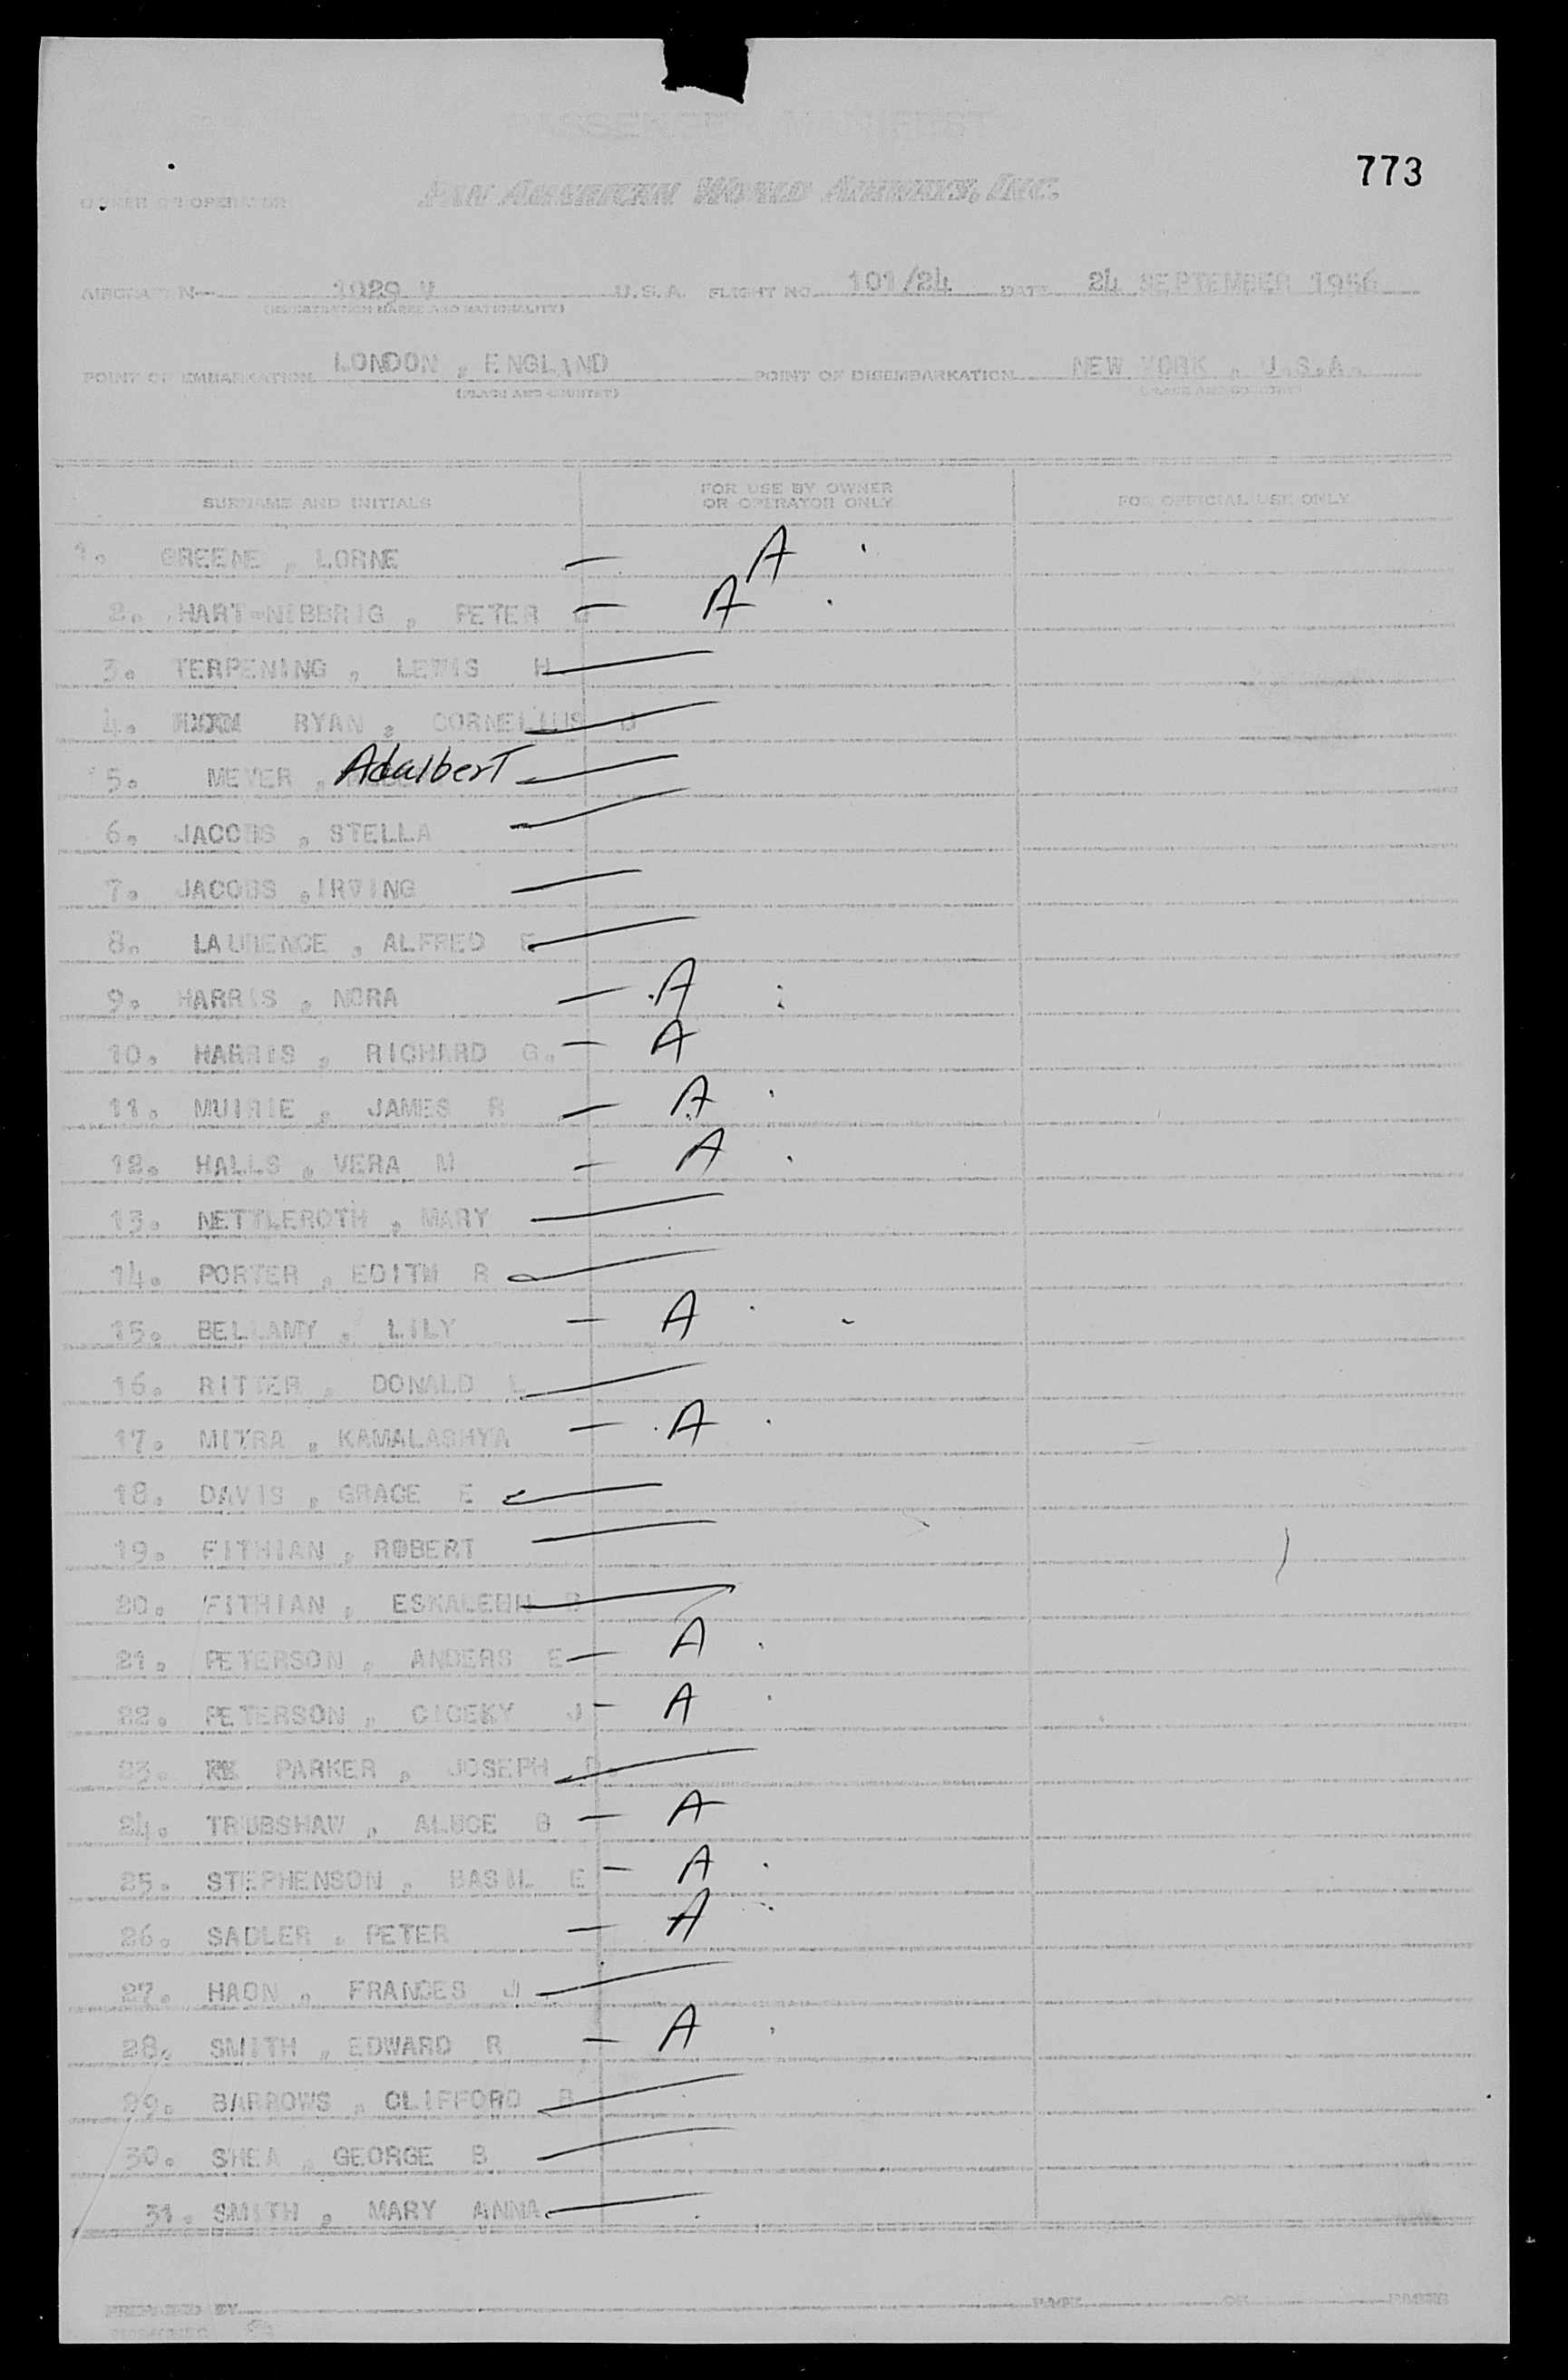 PASSENGER MANIFEST
773
OWNER OR OPERATOR PAN AMERICAN WORLD AIRWAYS, INC.
AIRCRAFT N— 1029 V U.S.A. FLIGHT NO. 101/24 DATE 24 SEPTEMBER 1956
(REGISTRATION MARKS AND NATIONALITY)
POINT OF EMBARKATION LONDON , ENGLAND POINT OF DISEMBARKATION NEW YORK , U.S.A.
(PLACE AND COUNTRY) (PLACE AND COUNTRY)
SURNAME AND INITIALS FOR USE BY OWNER OR OPERATOR ONLY FOR OFFICIAL USE ONLY
1. GREENE , LORNE — A
2. HART-NIBBRIG , PETER — A
3. TERPENING , LEWIS H
4. RYAN , CORNELIUS J
5. MEYER , Adalbert
6. JACOBS , STELLA
7. JACOBS , IRVING
8. LAURENCE , ALFRED E
9. HARRIS , NORA — A
10. HARRIS , RICHARD G. — A
11. MUIRIE , JAMES R — A
12. HALLS , VERA M — A
13. NETTLEROTH , MARY
14. PORTER , EDITH R
15. BELLAMY , LILY — A
16. RITTER , DONALD L
17. MITRA , KAMALASHYA — A
18. DAVIS , GRACE E
19. FITHIAN , ROBERT
20. FITHIAN , ESKALEHN B
21. PETERSON , ANDERS E — A
22. PETERSON , CICEKY J — A
23. PARKER , JOSEPH D.
24. TRUBSHAW , ALICE B — A
25. STEPHENSON , BASIL E — A
26. SADLER , PETER — A
27. HAON , FRANCES J
28. SMITH , EDWARD R — A
29. BARROWS , CLIFFORD B
30. SHEA , GEORGE B
31. SMITH , MARY ANNA
PREPARED BY PAGE OF PAGES